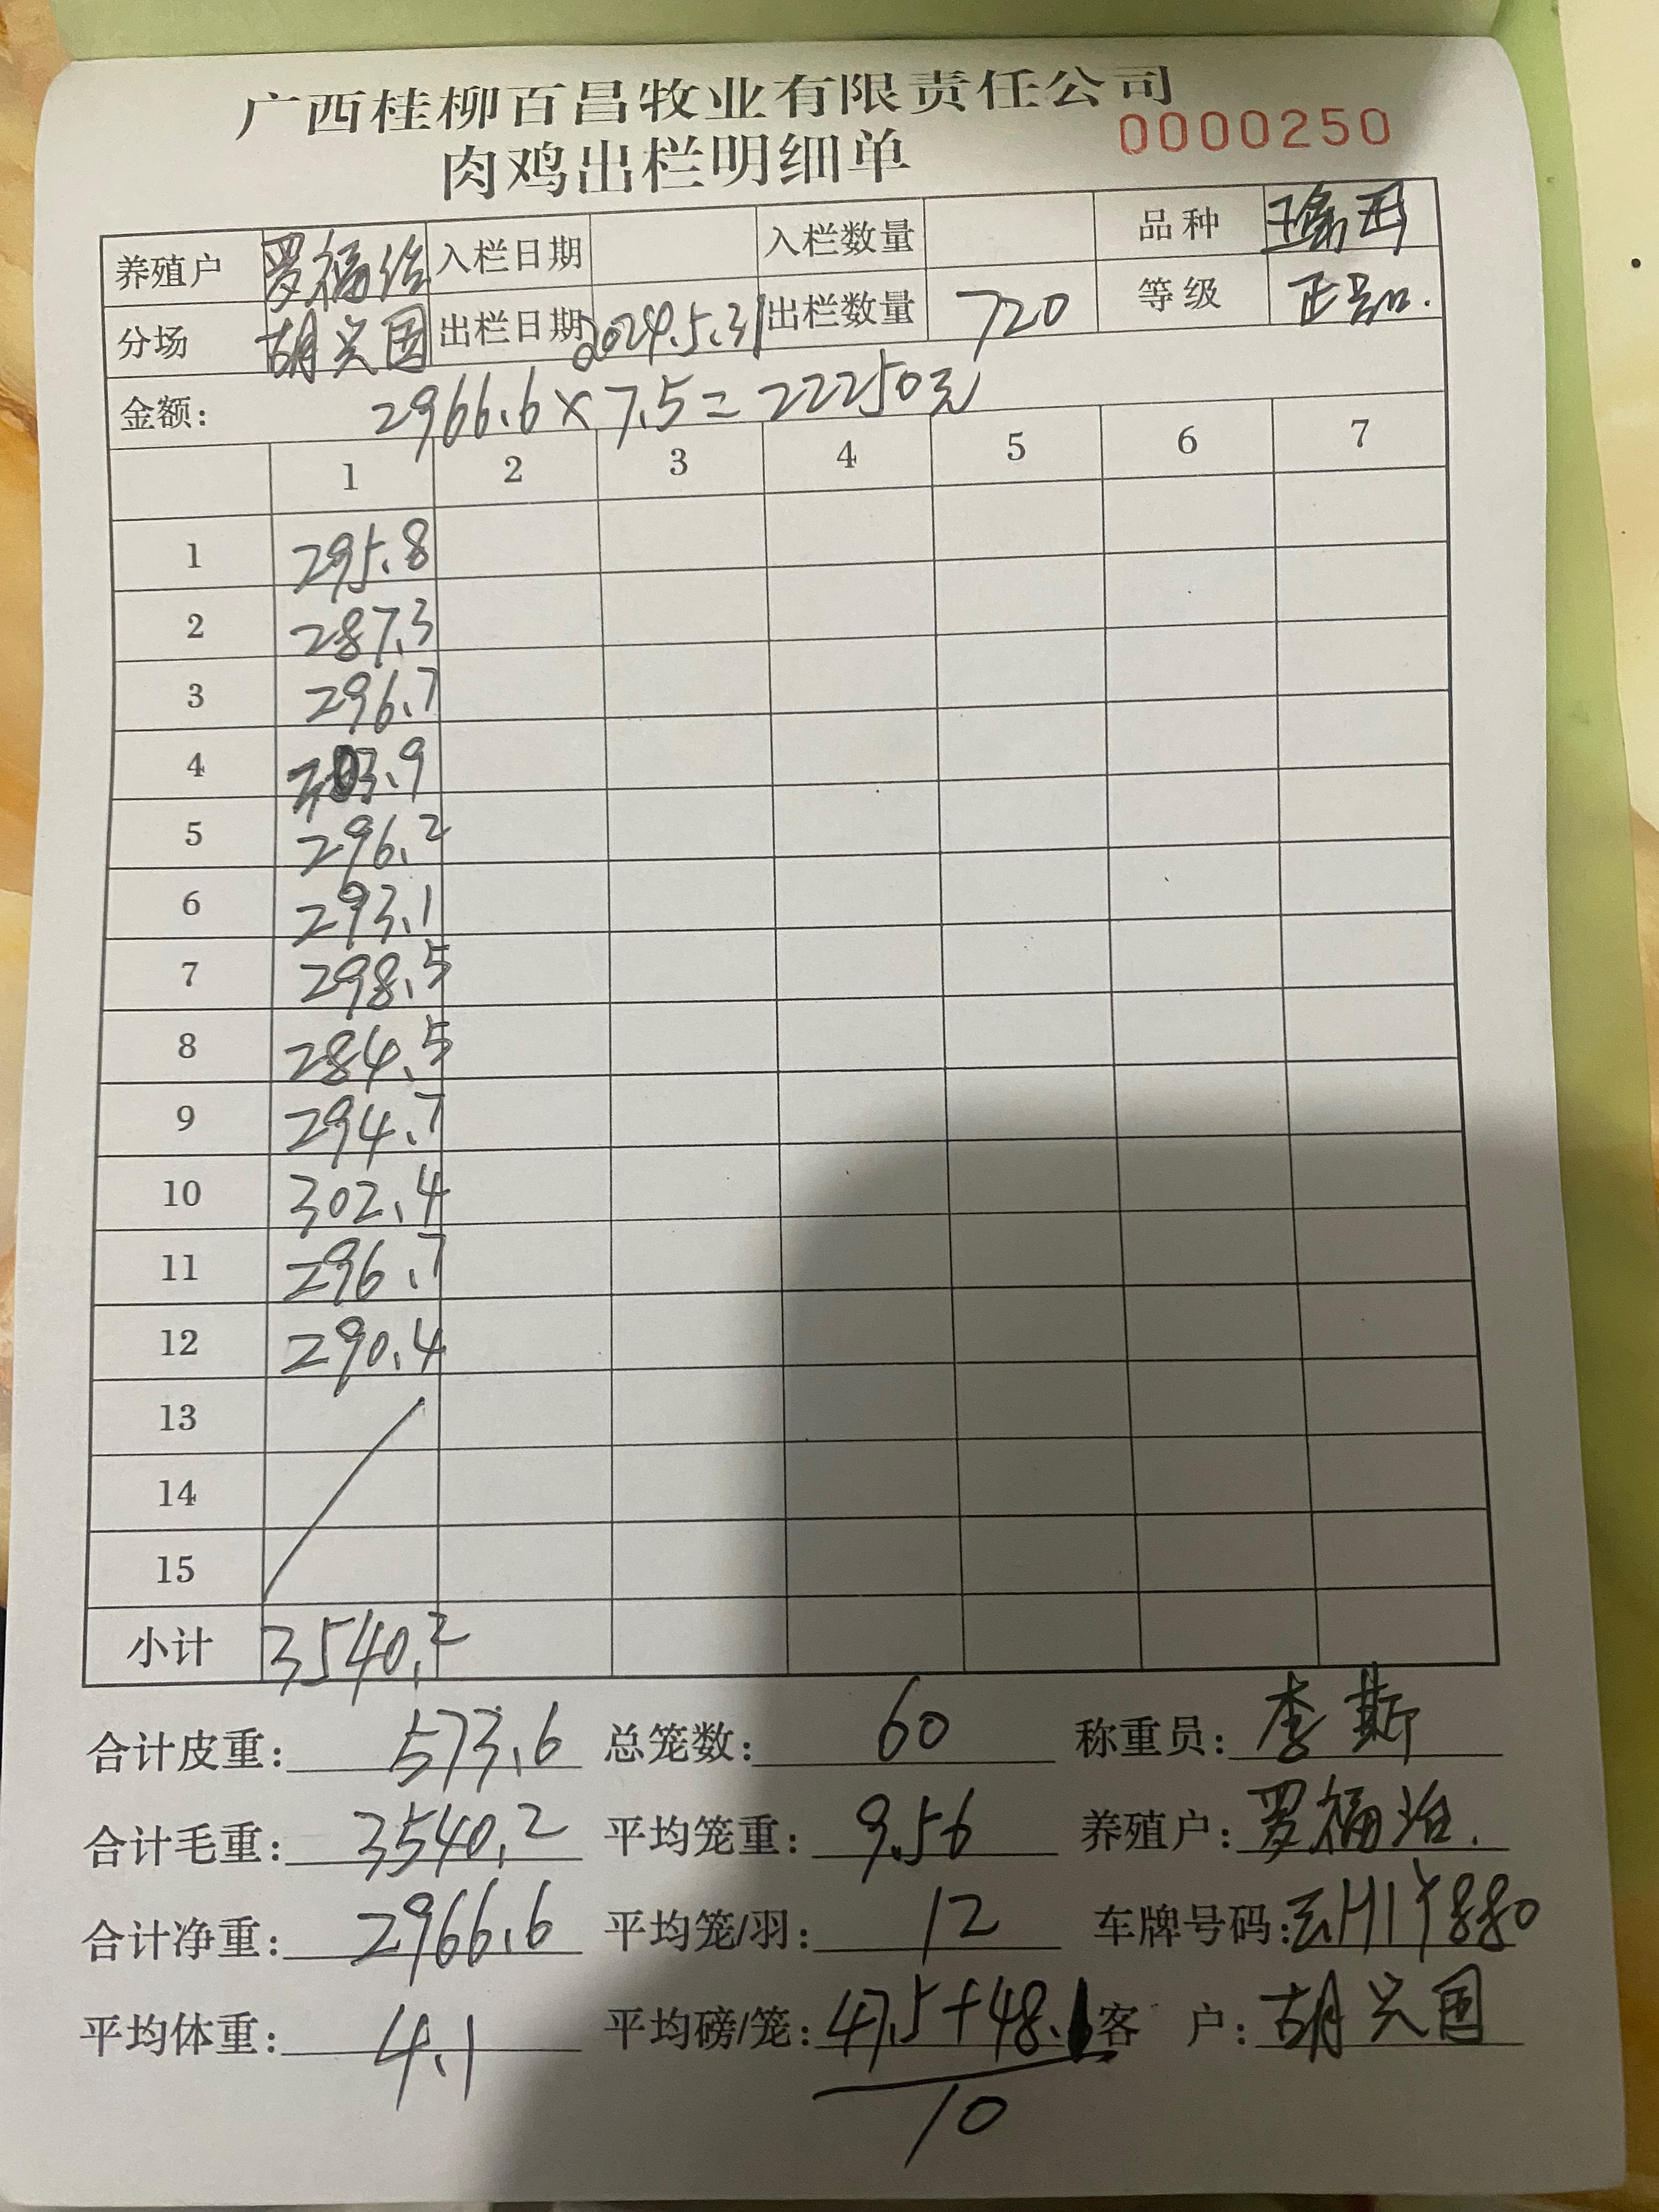 广西桂柳百昌牧业有限责任公司
肉鸡出栏明细单 0000250
养殖户 罗福治 入栏日期 入栏数量 品种
分场 胡兴国 出栏日期 2024.5.31 出栏数量 720 等级 正品.
金额: 2966.6×7.5=22250元
1 2 3 4 5 6 7
1 295.8
2 287.3
3 296.7
4 303.9
5 296.2
6 293.1
7 298.5
8 284.5
9 294.7
10 302.4
11 296.7
12 290.4
13
14
15
小计 3540.2
合计皮重: 573.6 总笼数: 60 称重员: 李斯
合计毛重: 3540.2 平均笼重: 9.56 养殖户: 罗福治.
合计净重: 2966.6 平均笼/羽: 12 车牌号码: 云H1Y880
平均体重: 4.1 平均磅/笼: 47.5+48.1 客 户: 胡兴国
10